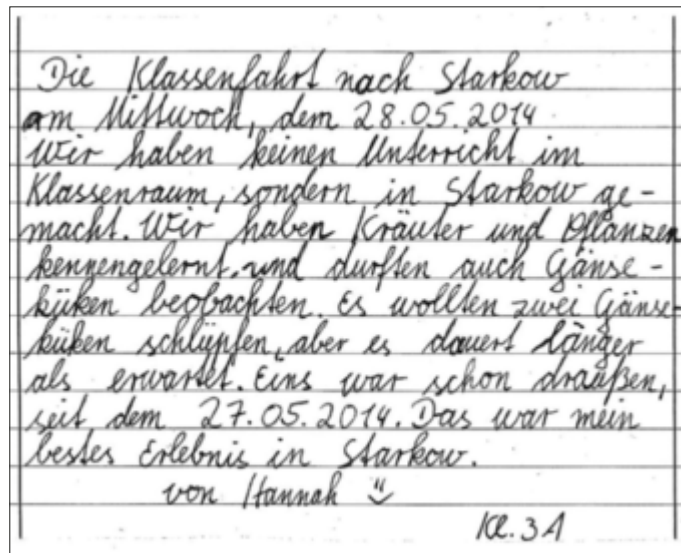 Die Klassenfahrt nach Starkow
am Mittwoch, dem 28.05.2014
Wir haben keinen Unterricht im
Klassenraum, sondern in Starkow ge-
macht. Wir haben Kräuter und Pflanzen
kennengelernt und durften auch Gänse-
küken beobachten. Es wollten zwei Gänse-
küken schlüpfen, aber es dauert länger
als erwartet. Eins war schon draußen,
seit dem 27.05.2014. Das war mein
bestes Erlebnis in Starkow.
von Hannah
Kl. 3A